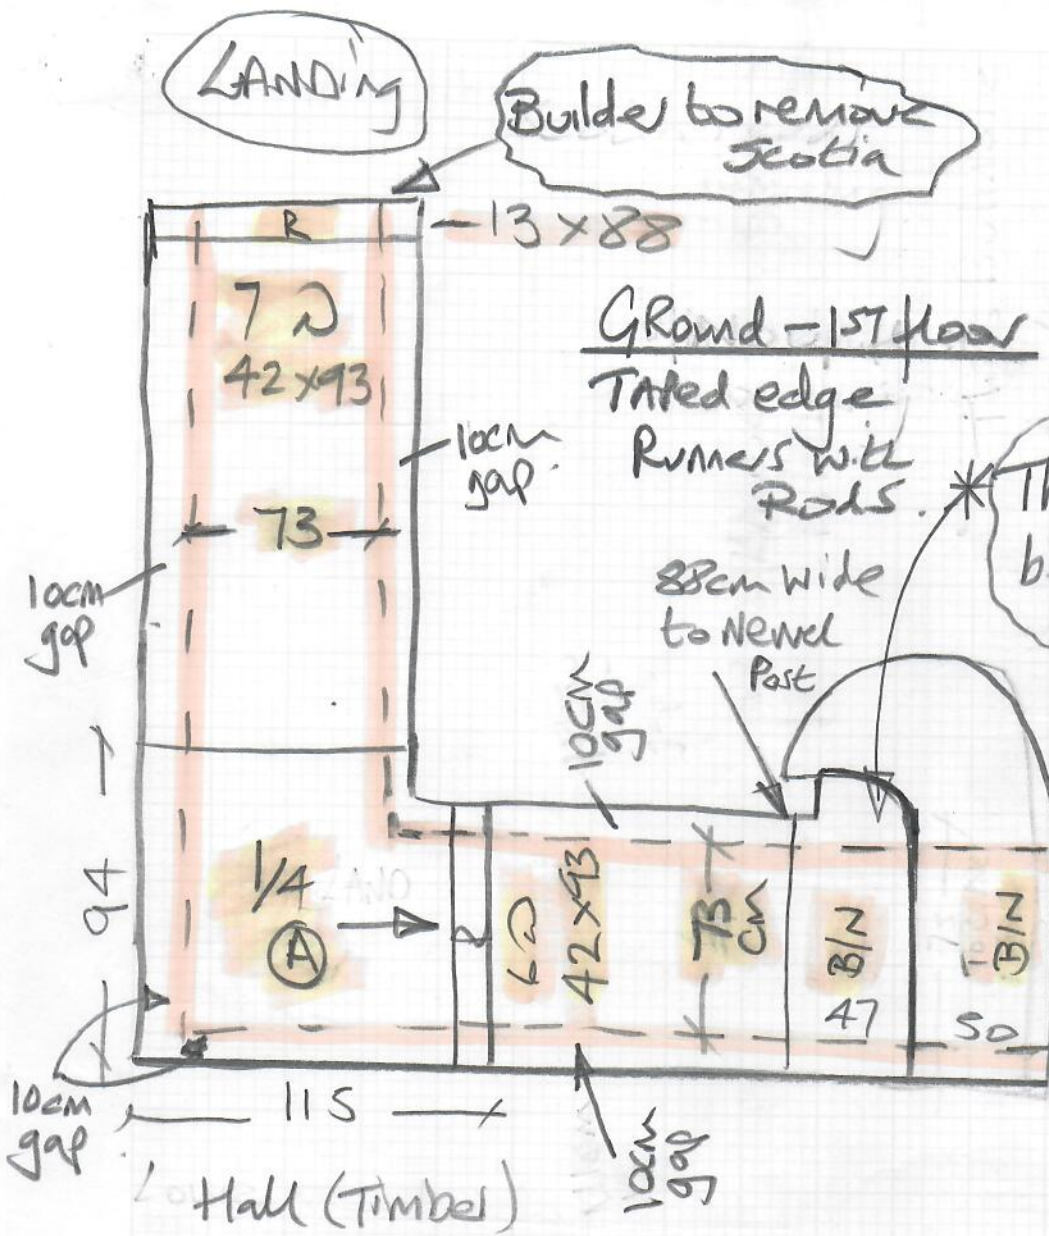 LANDing
Builder to remove
Scotia
R
- 13 x 88
7
42 x 93
GRound - 1ST floor
TAPed edge
Runners with
Rods.
10cm
gap.
73
Th
b.
88cm wide
to Newel
Post
10cm
gap
10cm
gap
94
1/4
A
R
6
42 x 93
73
CM
B/N
47
B/N
50
10cm
gap
115
10cm
gap
Hall (Timber)